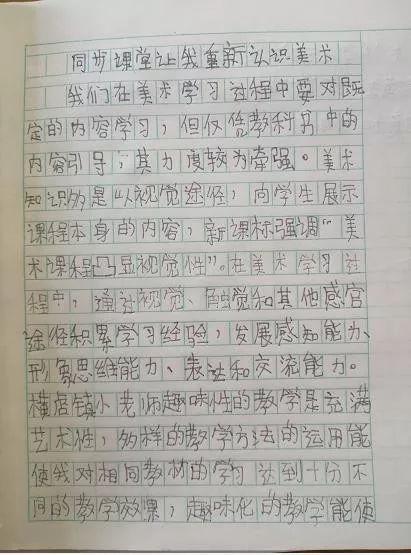 同步课堂让我重新认识美术
我们在美术学习过程中要对既
定的内容学习，但仅凭教科书中的
内容引导，其力度较为牵强。美术
知识的是以视觉途径，向学生展示
课程本身的内容，新课标强调“美
术课程凸显视觉性”。在美术学习过
程中，通过视觉、触觉和其他感官
途径积累学习经验，发展感知能力、
形象思维能力、表达和交流能力。
横店镇小老师趣味性的教学是充满
艺术性，多样的教学方法的运用能
使我对相同教材的学习达到十分不
同的教学效果，趣味化的教学能使